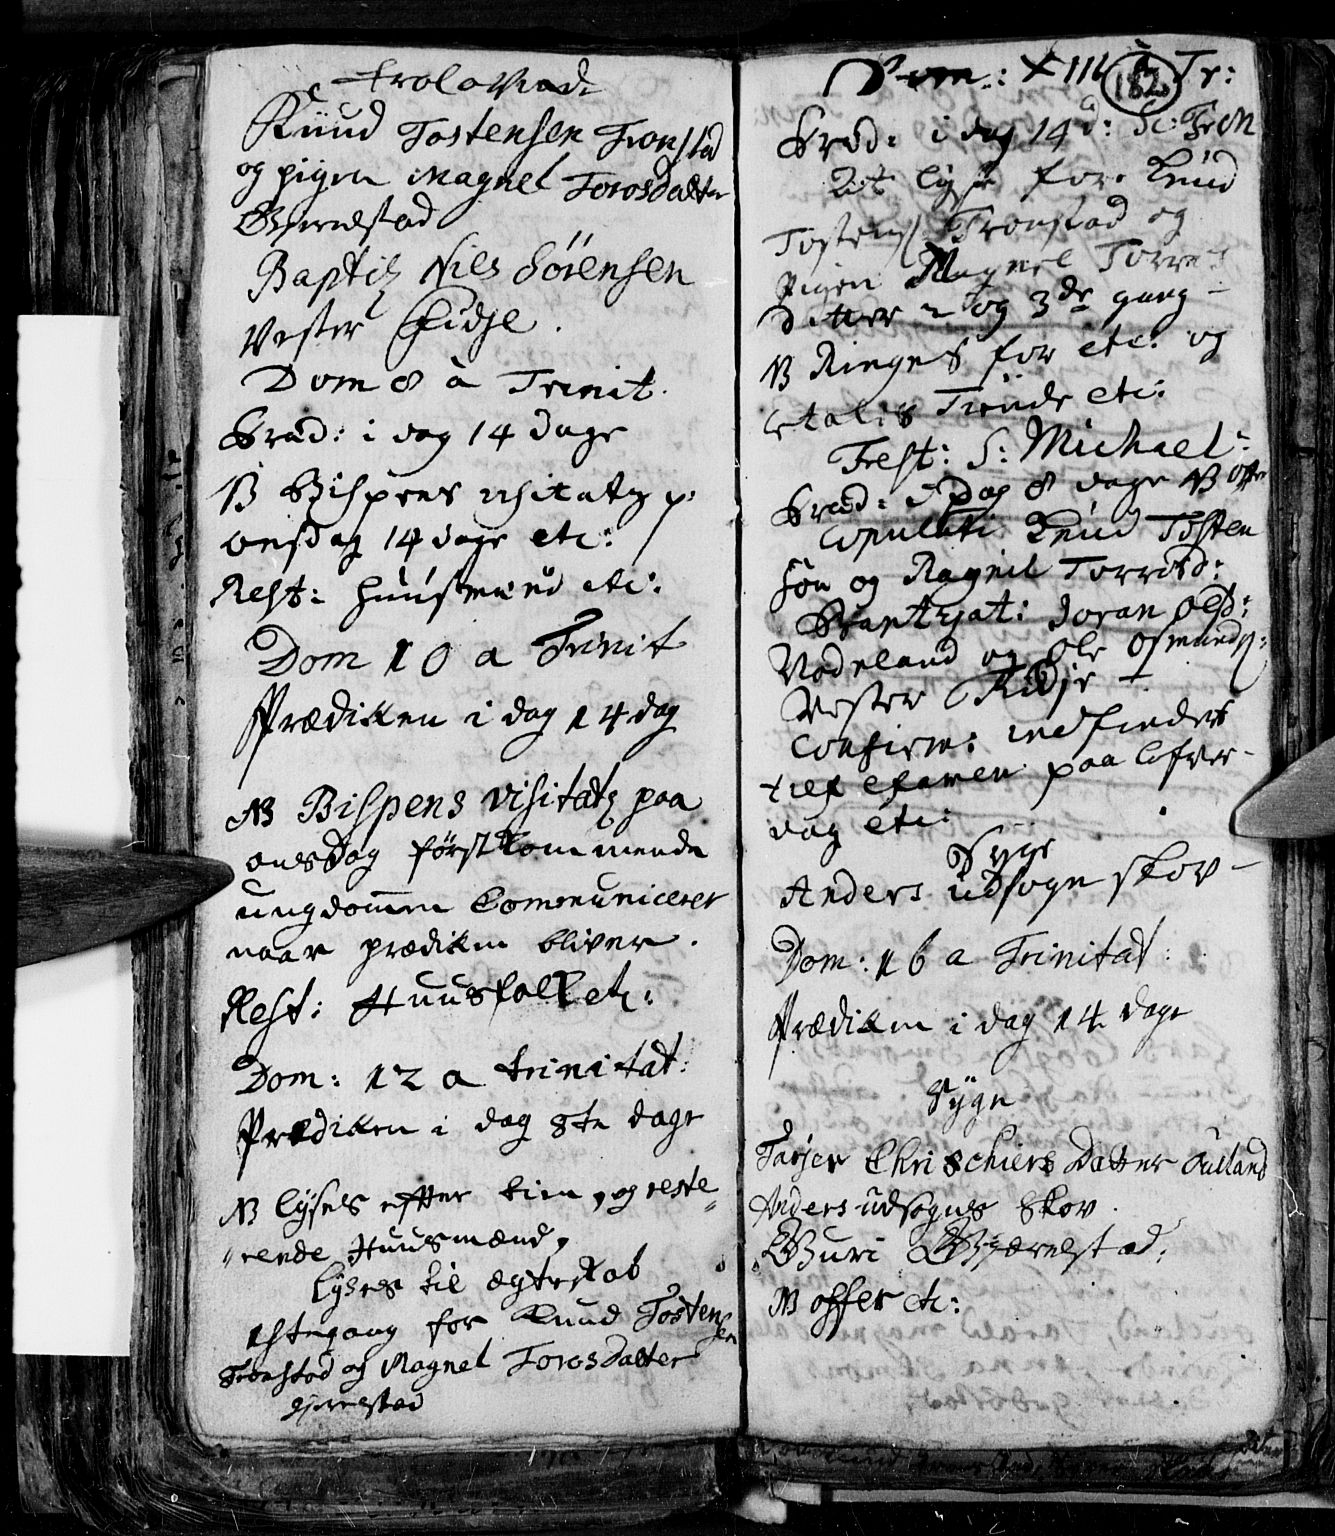 Trolovede
Knud Tostensen Tronstad
og pigen Magnel Torosdatter
Gjernestad
Baptiz Nils Sörensen
Vester Eidje.
Dom 8 à Trinit.
Præd: i dag 14 dage
NB Bispens visitatz p:
onsdag 14 dage etc:
Rest: huusmænd etc:
Dom 10 a Trinit
Prædiken i dag 14 dag
NB Bispens visitatz paa
onsdag förstkommende
ungdommen Communicerer
naar prædiken bliver.
Rest: Huusfolk etc:
Dom: 12 a trinitat:
Prædiken i dag 8te dage
NB lÿses efter tien, og reste„
„rende Huusmænd,
lyses til ægteskab
1ste gang for Knud Tosten
sen
Tronstad og Magnel Torosdatter
gjernestad
Dom: XIII à Tr:
182
Præd: i dag 14 d:
lyst for Knud
Tostens Tronstad og
Pigen Magnel
2 og 3de gang
NB Ringes for etc: og
Tiende etc:
Fest: S: Michael:
Præd: i dag 8 dage NB offer
Copulati Knud Tosten
sön og Ragnil Torrosd:
Baptizat: Joran Olsd:
Vodeland og Ole Osmunds:
Vester Eidje
Confirm: indfindes
til examen paa Löfver-
dag etc:
Syge
Anders udsogn skov-
Dom: 16 a Trinitat:
Prædiken i dag 14 dage
Sÿge
Tarjer Chrischiers Datter Aulland
Anders udsogns Skov.
Guri Gjernestad.
NB offer etc: